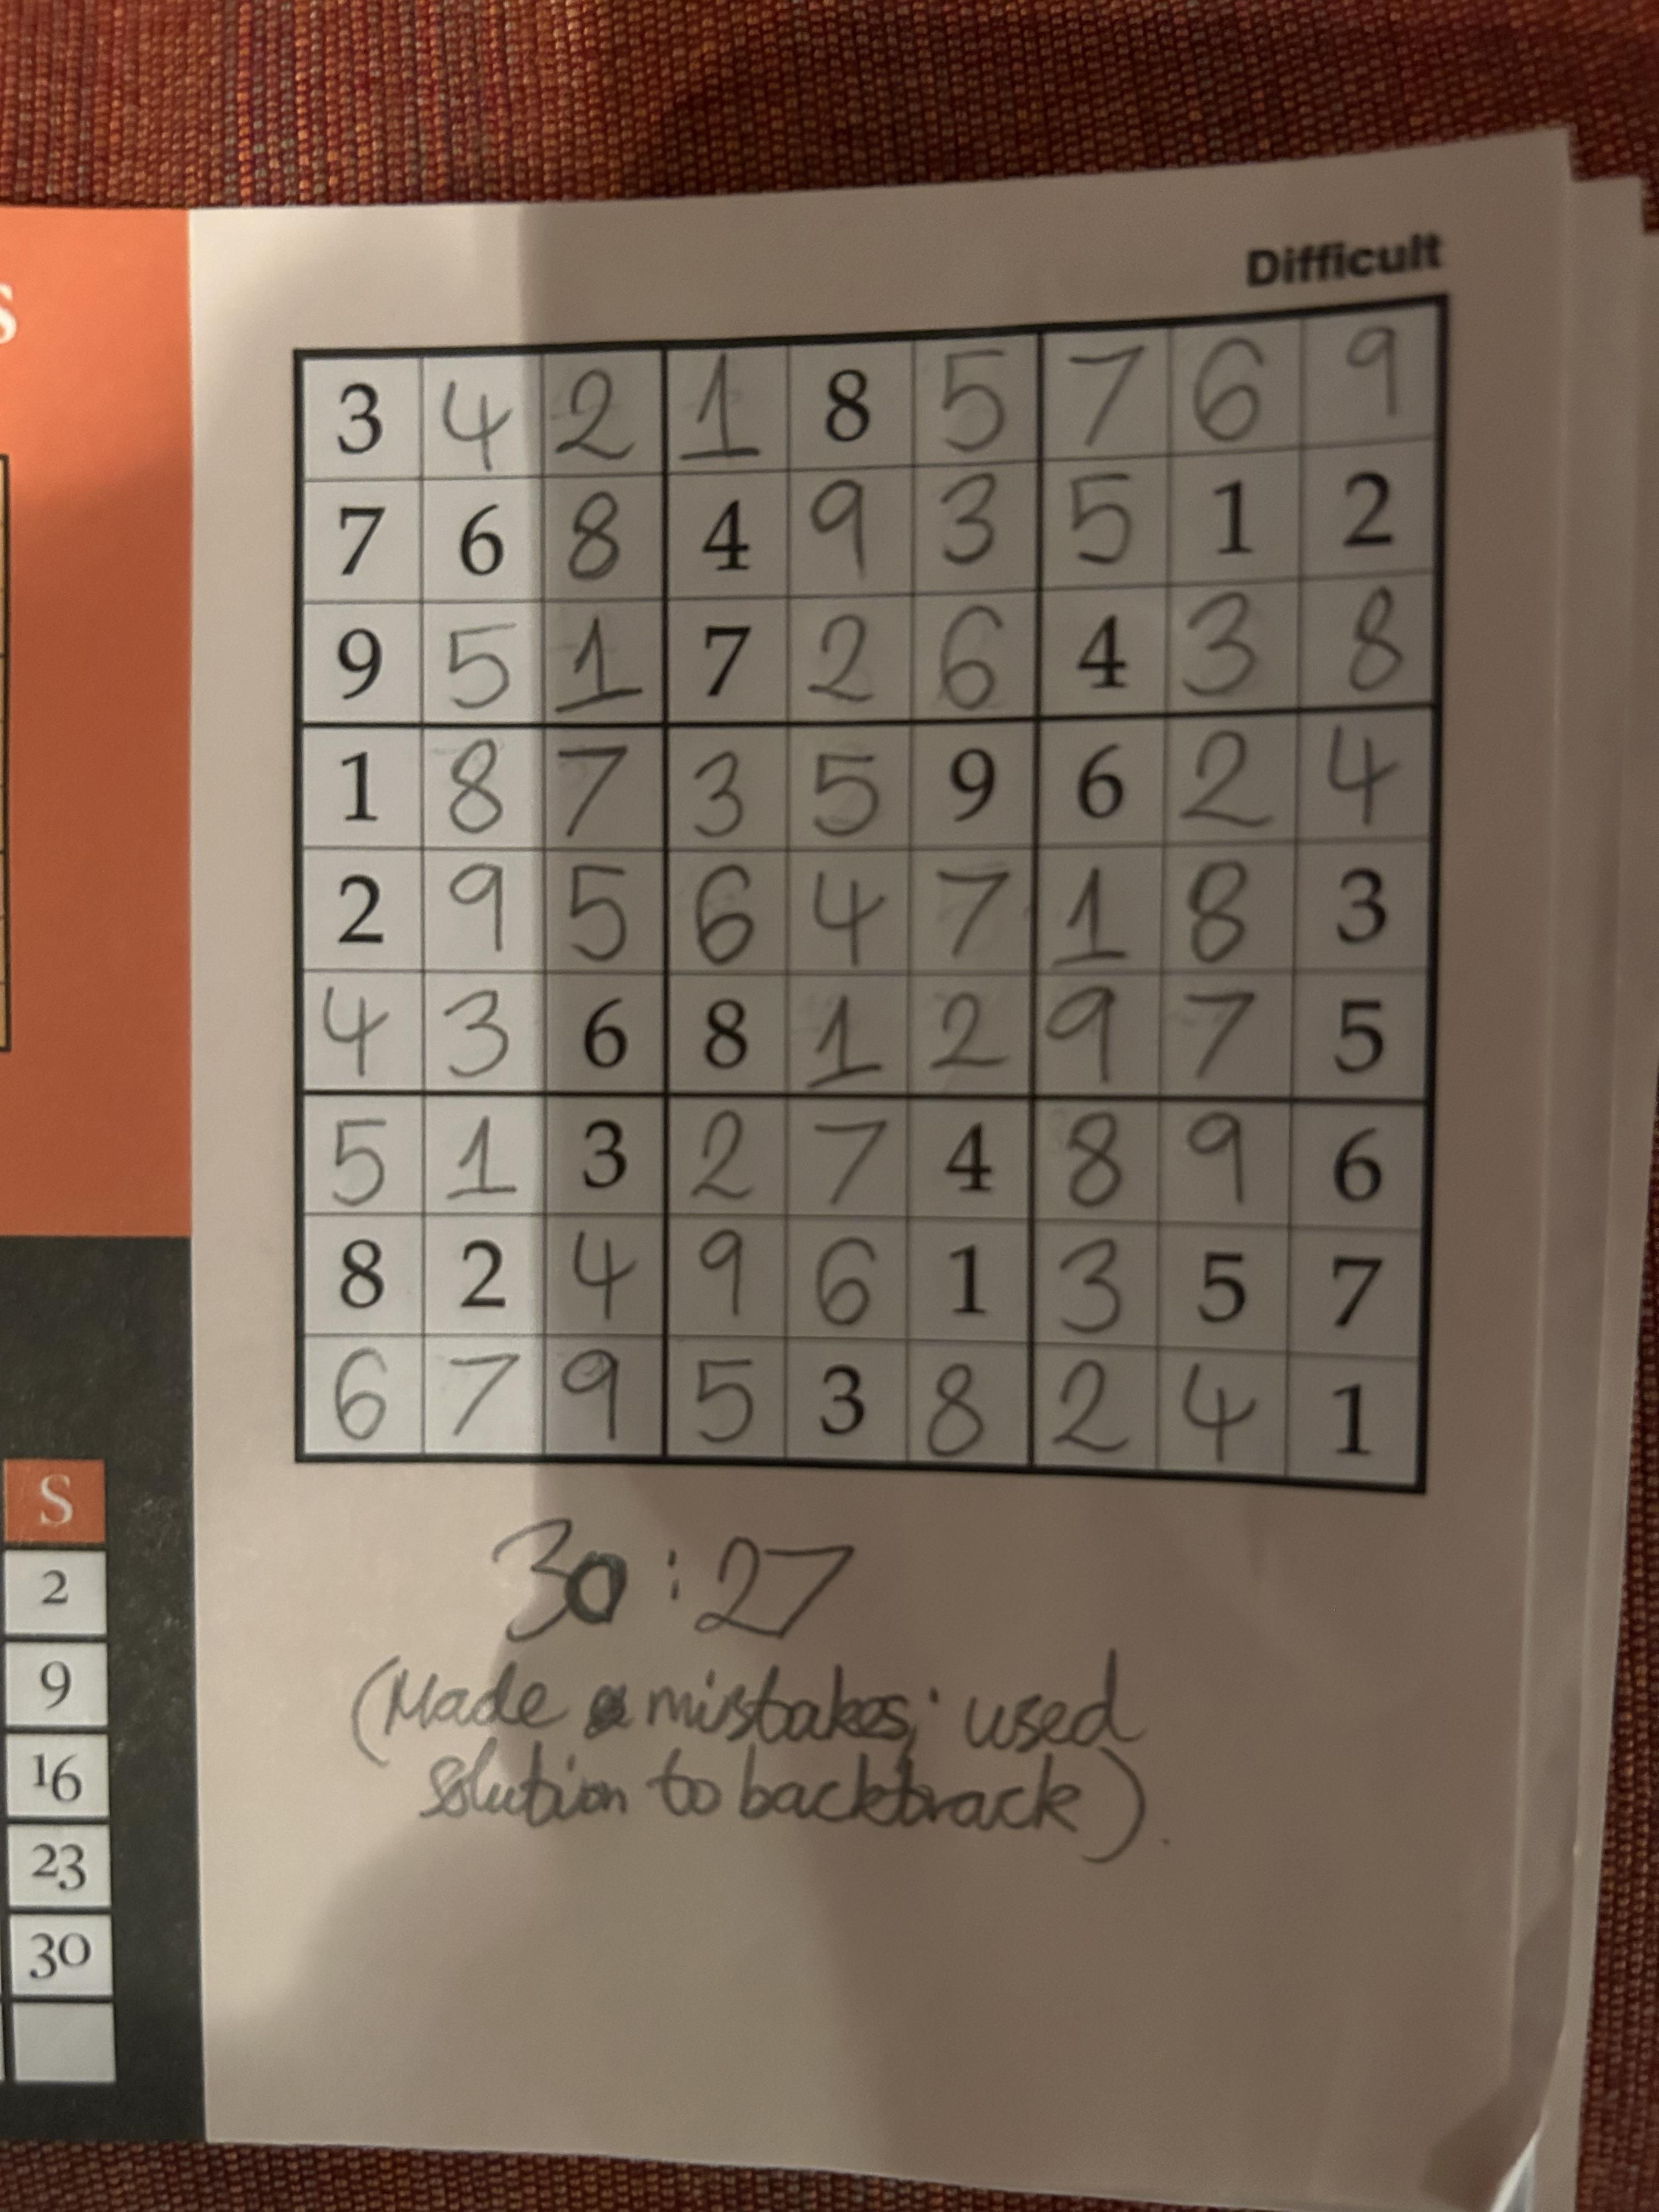 S
Difficult
3 4 2 1 8 5 7 6 9
7 6 8 4 9 3 5 1 2
9 5 1 7 2 6 4 3 8
1 8 7 3 5 9 6 2 4
2 9 5 6 4 7 1 8 3
4 3 6 8 1 2 9 7 5
5 1 3 2 7 4 8 9 6
8 2 4 9 6 1 3 5 7
6 7 9 5 3 8 2 4 1
S
2
9
16
23
30
30:27
(Made mistakes; used
solution to backtrack).